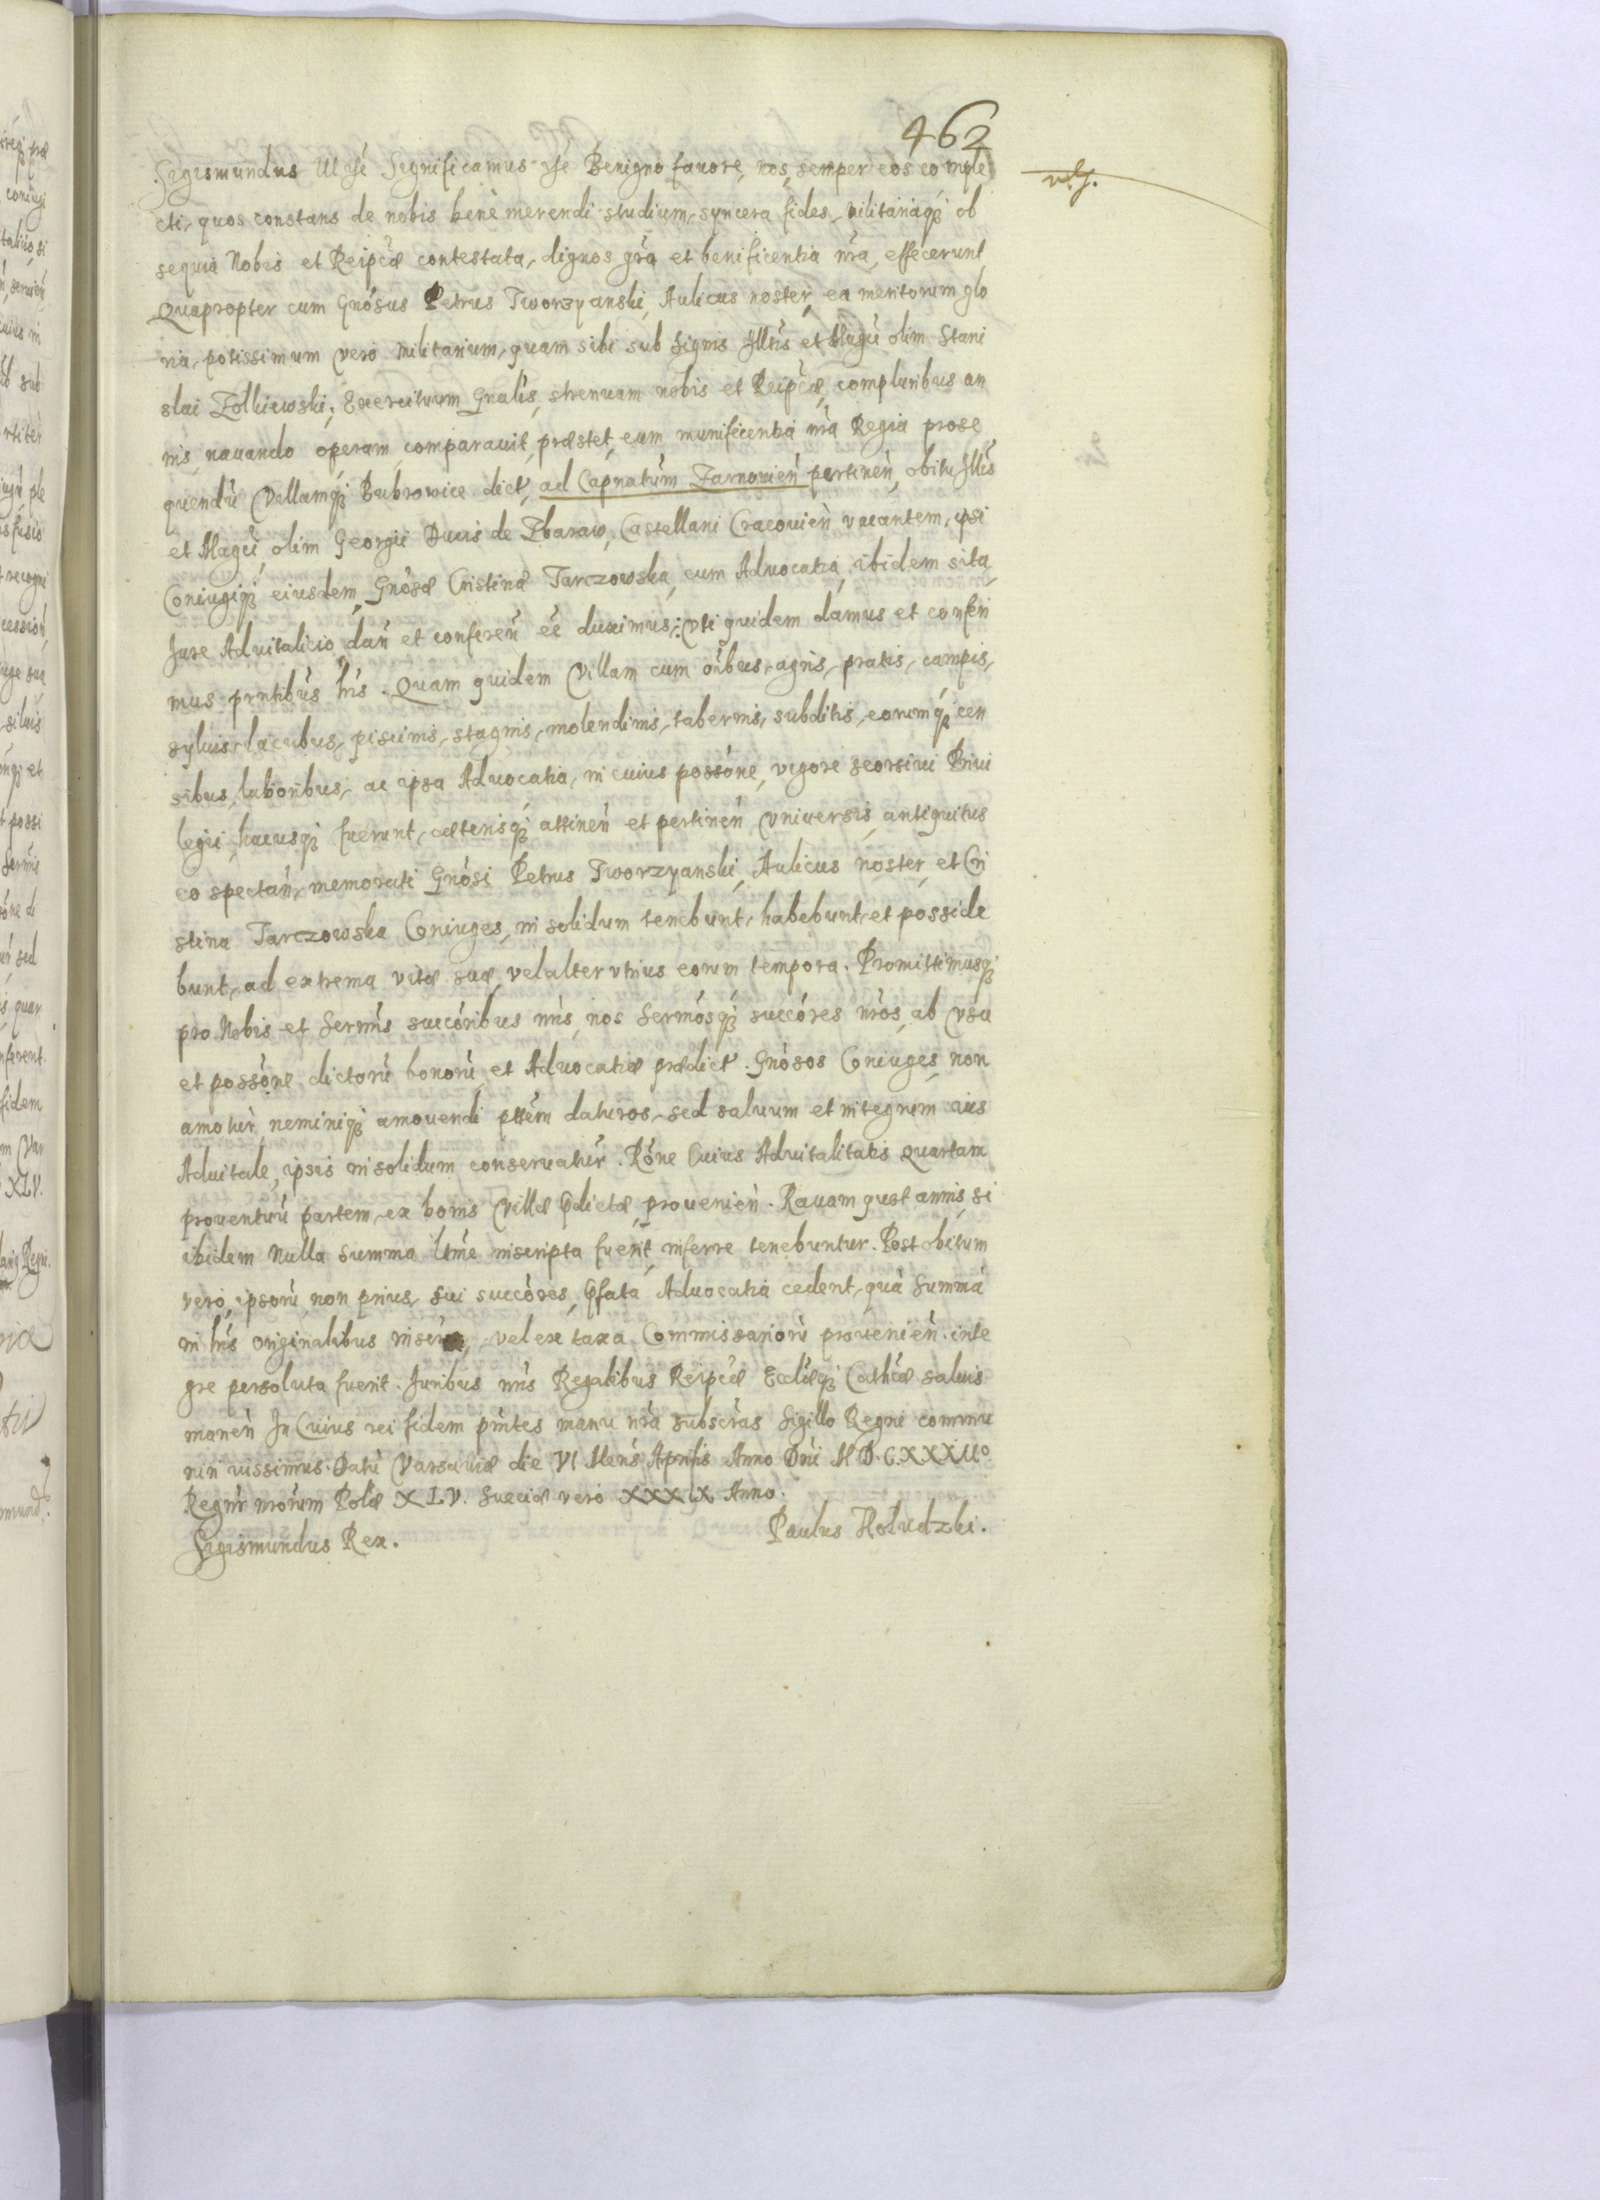 462
Sigismundus Ut ẜe Significamus ẜe Benigno favore, nos, semper eos comple
cti, quos constans de nobis benè merendi studium, syncera fides, militariaq́ꝫ ob
sequia Nobis et Reipcæ contestata, dignos gr̃a et benificentia nr̃a, effecerunt
Quapropter cum Gnósus Petrus Tworzyanski, Aulicus noster, ea meritorum glo
ria, potissimum verò militarium, quam sibi sub signis Illtis et Magci olim Stani
slai Zolkiewski, Exercituum Gnalis, strenuam nobis et Reipcæ, compluribus an
nis, navando operam, comparavit, præstet, eum munificentia nr̃a Regia prose
quendũ Villamq́ꝫ Bubrowice dict, ad Capnatum Zarnovień pertineń, obitu Illis
et Magci, olim Georgii Ducis de Zbaraw, Castellani Cracovień vacantem, ipsi
Coniugiq́ꝫ eiusdem, Gnósæ Cristinæ Tarczowska, cum Advocatia, ibidem sita,
Jure Advitalicio dań et confereń ẽe duximus; vti quidem damus et conferi
mus prntibus hìs. Quam quidem Villam cum oĩbus, agris, pratis, campis,
sylvis, lacubus, piscinis, stagnis, molendinis, tabernis, subditis, eorumq́ꝫ cen
sibus, laboribus, ac ipsa Advocatia, in cuius possóne, vigore seorsivi Privi
legii, hucusq́ꝫ fuerunt, cæterisq́ꝫ attineń et pertineń vniversis, antiquitus
eo spectań, memorati Gnósi Petrus Tworzyanski, Aulicus noster, et Cri
stina Tarczowska Coniuges, in solidum tenebunt, habebunt, et posside
bunt, ad extrema vitæ suæ, vel alter vtrius eorum tempora. Promittimusq́ꝫ
pro Nobis et Sermis succóribus nr̃is, nos Sermósq́ꝫ succóres nr̃os, ab vsu
et possóne dictorũ bonorũ, et Advocatiæ prædict. Gnósos Coniuges, non
amotur, neminiq́ꝫ amovendi pttẽm daturos, sed salvum et integrum ius
Advitale, ipsis in solidum conservatur. Róne Cuius Advitalitatis Quartam
proventuũ partem, ex bonis Villæ p̃dictæ, provenień. Ravam quot annis, si
ibidem nulla summa ltme inscripta fuerit, inferre tenebuntur. Post obitum
verò, ipsorũ non prius, sui succóres, p̃fata Advocatia cedent, quà summà
in lr̃is originalibus inser, vel ex taxa Commissariorũ provenień. inte
gre persoluta fuerit. Juribus nr̃is Regalibus Reipcæ Ecclæq́ꝫ Cathcæ salvis
maneń In Cuius rei fidem pr̃ntes manu nr̃a subscr̃as Sigillo Regni commu
niri iussimus. Datũ Varsaviæ die VI Mens Aprilis Anno Dńi M D. C. XXXIIº
Regnor nrorum Polæ XLV. Sueciæ vero XXXIX Anno.
Sigismundus Rex. Paulus Wołudzki.